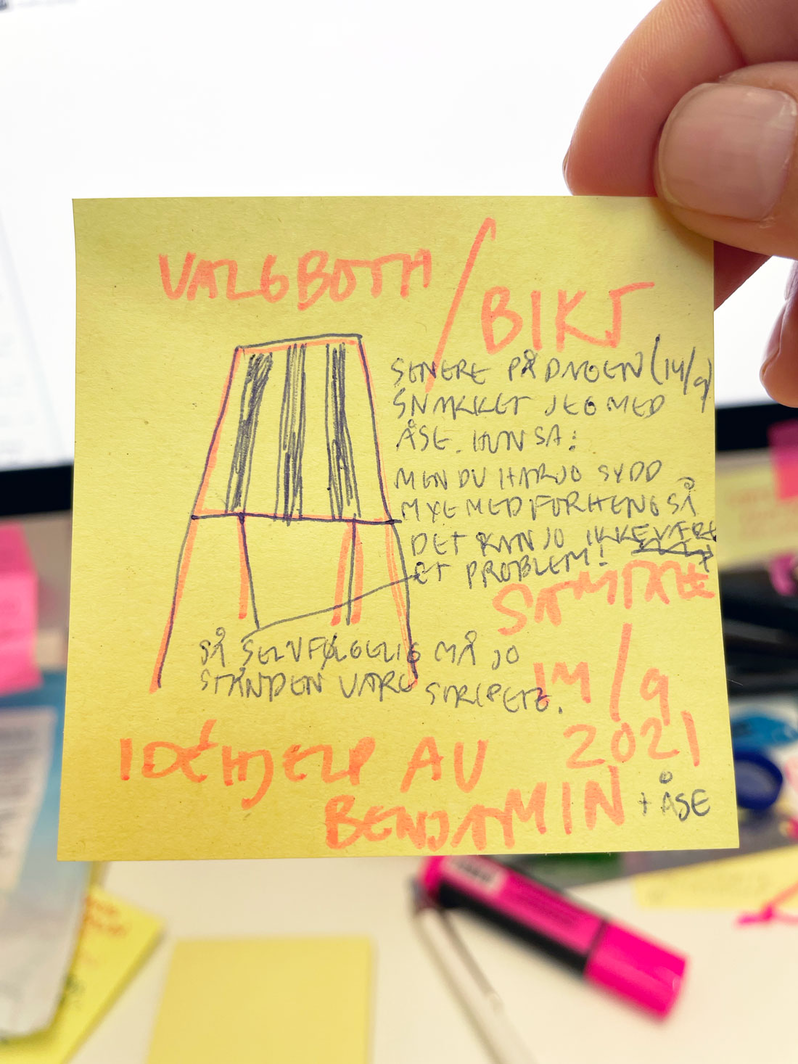 VALGBOTH / BIKT
SENERE PÅ DAGEN (14/9)
SNAKKET JEG MED
ÅSE. HUN SA:
MEN DU HAR JO SYDD
MYE MED FORHENG SÅ
DET KAN JO IKKE VÆRE
ET PROBLEM!
SAMTALE
14/9
2021
SÅ SELVFØLGELIG MÅ JO
STANDEN VÆRE STRIPETE.
IDÉHJELP AV
BENJAMIN + ÅSE